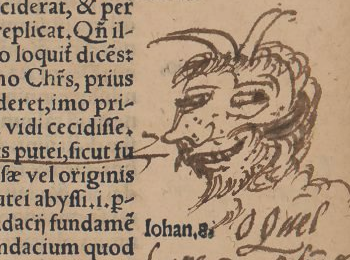 ciderat, & per
replicat. Qñ il-
o loquit̃ dicẽs:
no Chr̃s, prius
deret, imo pri-
vidi cecidisse.
s putei, sicut fu
sæ vel originis
utei abyssi. i. p-
dacij fundamẽ
ndacium quod
Iohan. 8.